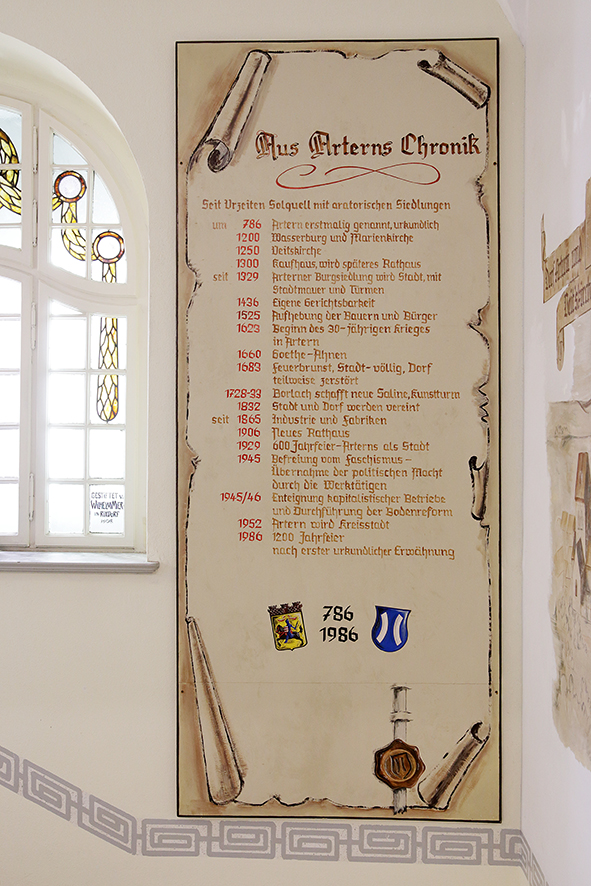 Aus Arterns Chronik
Seit Urzeiten Solquell mit aratorischen Siedlungen
um 786 Artern erstmalig genannt, urkundlich
1200 Wasserburg und Marienkirche
1250 Veitskirche
1300 Kaufhaus, wird späteres Rathaus
seit 1329 Arterner Burgsiedlung wird Stadt, mit
Stadtmauer und Türmen
1436 Eigene Gerichtsbarkeit
1525 Aufhebung der Bauern und Bürger
1623 Beginn des 30-jährigen Krieges
in Artern
1660 Goethe-Ahnen
1683 Feuerbrunst, Stadt- völlig, Dorf
teilweise zerstört
1728-33 Borlach schafft neue Saline, Kunstturm
1832 Stadt und Dorf werden vereint
seit 1865 Industrie und Fabriken
1906 Neues Rathaus
1929 600 Jahrfeier-Arterns als Stadt
1945 Befreiung vom Faschismus-
Übernahme der politischen Macht
durch die Werktätigen
1945/46 Enteignung kapitalistischer Betriebe
und Durchführung der Bodenreform
1952 Artern wird Kreisstadt
1986 1200 Jahrfeier
nach erster urkundlicher Erwähnung
786
1986
GESTIFTET V.